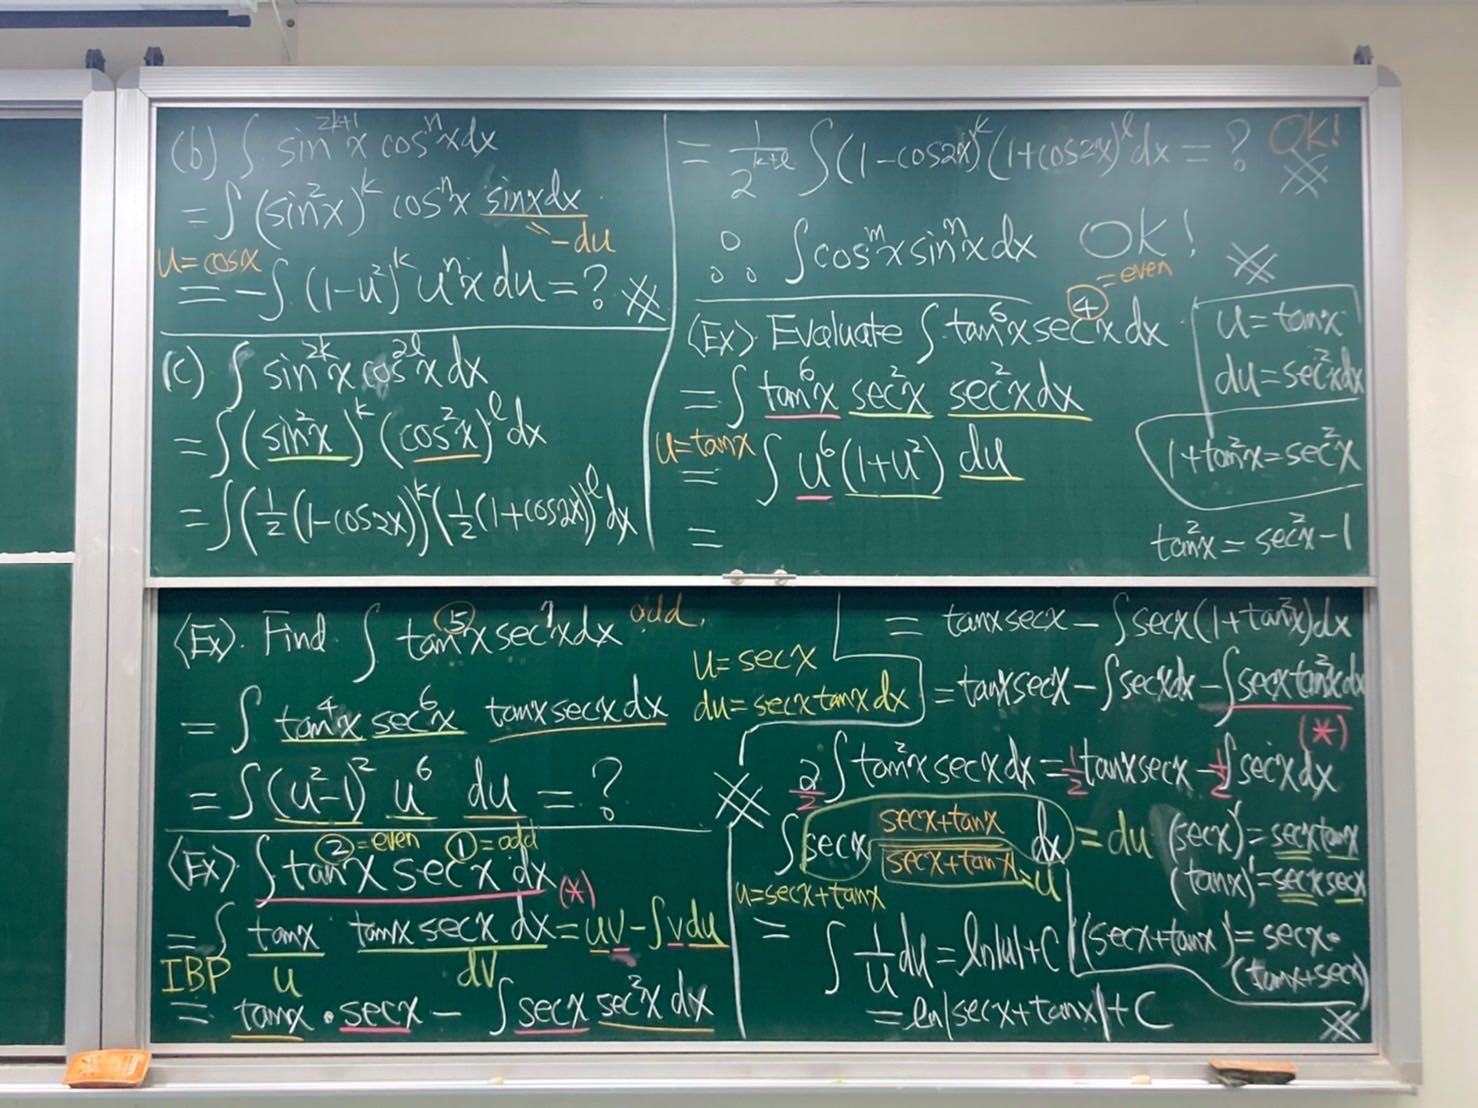 (b) ∫ sin^{2k+1}x cos^n x dx
= ∫ (sin²x)^k cos^n x sinx dx
= -du
u=cosx
= -∫ (1-u²)^k u^n x du = ?
(c) ∫ sin^{2k}x cos^{2l}x dx
= ∫ (sin²x)^k (cos²x)^l dx
= ∫ (½(1-cos2x))^k (½(1+cos2x))^l dx
= 1/2^{k+l} ∫ (1-cos2x)^k (1+cos2x)^l dx = ? Ok!
∴ ∫ cos^m x sin^n x dx OK!
= even
<Ex> Evaluate ∫ tan⁶x sec⁴x dx
= ∫ tan⁶x sec²x sec²x dx
u=tanx
= ∫ u⁶ (1+u²) du
=
u = tanx
du = sec²x dx
1+tan²x = sec²x
tan²x = sec²x - 1
<Ex> Find ∫ tan⁵x sec⁷x dx odd.
= ∫ tan⁴x sec⁶x tanx secx dx
u = secx
du = secx tanx dx
= ∫ (u²-1)² u⁶ du = ?
② = even ① = odd
<Ex> ∫ tan²x secx dx (*)
= ∫ tanx tanx secx dx = uv - ∫ v du
IBP u dv
= tanx · secx - ∫ secx sec²x dx
= tanx secx - ∫ secx (1+tan²x) dx
= tanx secx - ∫ secx dx - ∫ secx tan²x dx
(*)
2/2 ∫ tan²x secx dx = ½ tanx secx - ½ ∫ secx dx
∫ secx (secx+tanx)/(secx+tanx) dx = du
= u
u = secx+tanx
= ∫ 1/u du = ln|u| + C
= ln|secx+tanx| + C
(secx)' = secx tanx
(tanx)' = secx secx
(secx+tanx)' = secx·
(tanx+secx)